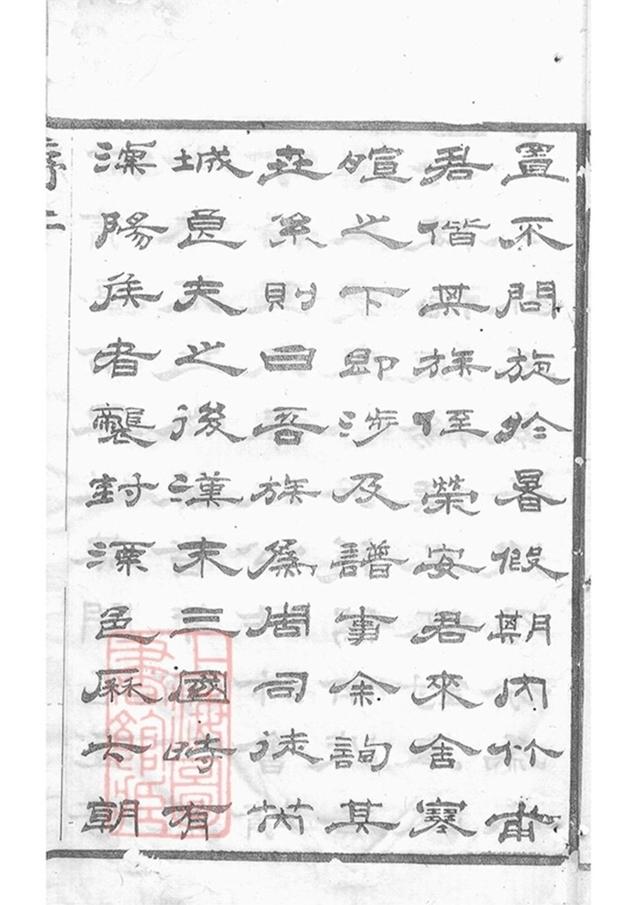 置不問旋於暑假期內竹甫
君偕其族侄榮安君來舍寒
暄之下即涉及譜事余詢其
世系則曰吾族為周司徒芮
城良夫之後漢末三國時有
溧陽侯者襲封溧邑厤六朝
上海圖書館藏